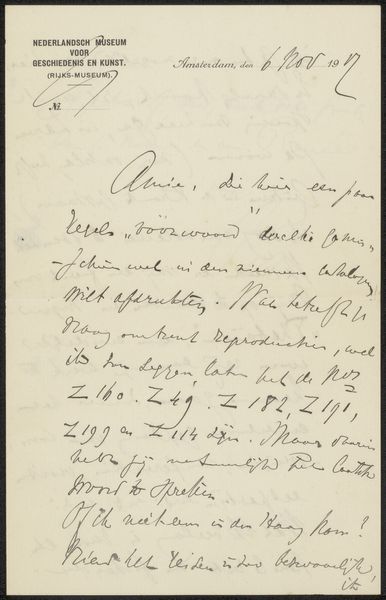 NEDERLANDSCH MUSEUM
VOOR
GESCHIEDENIS EN KUNST.
(RIJKS-MUSEUM).
Amsterdam, den 6 Nov 1917
No.
Amice, die hier een paar
regels „voorwoord"
wel in den nieuwen catalogus
wilt afdrukken. Wat betreft je
vraag omtrent reproducties, wel
ik zou zeggen laten het de Nos
Z 160. Z 49. Z 182, Z 191,
Z 199 en Z 114 zijn. Maar daarin
hebt jij natuurlijk het laatste
woord te spreken
Of ik in den Haag kom?
het Leiden is
ik